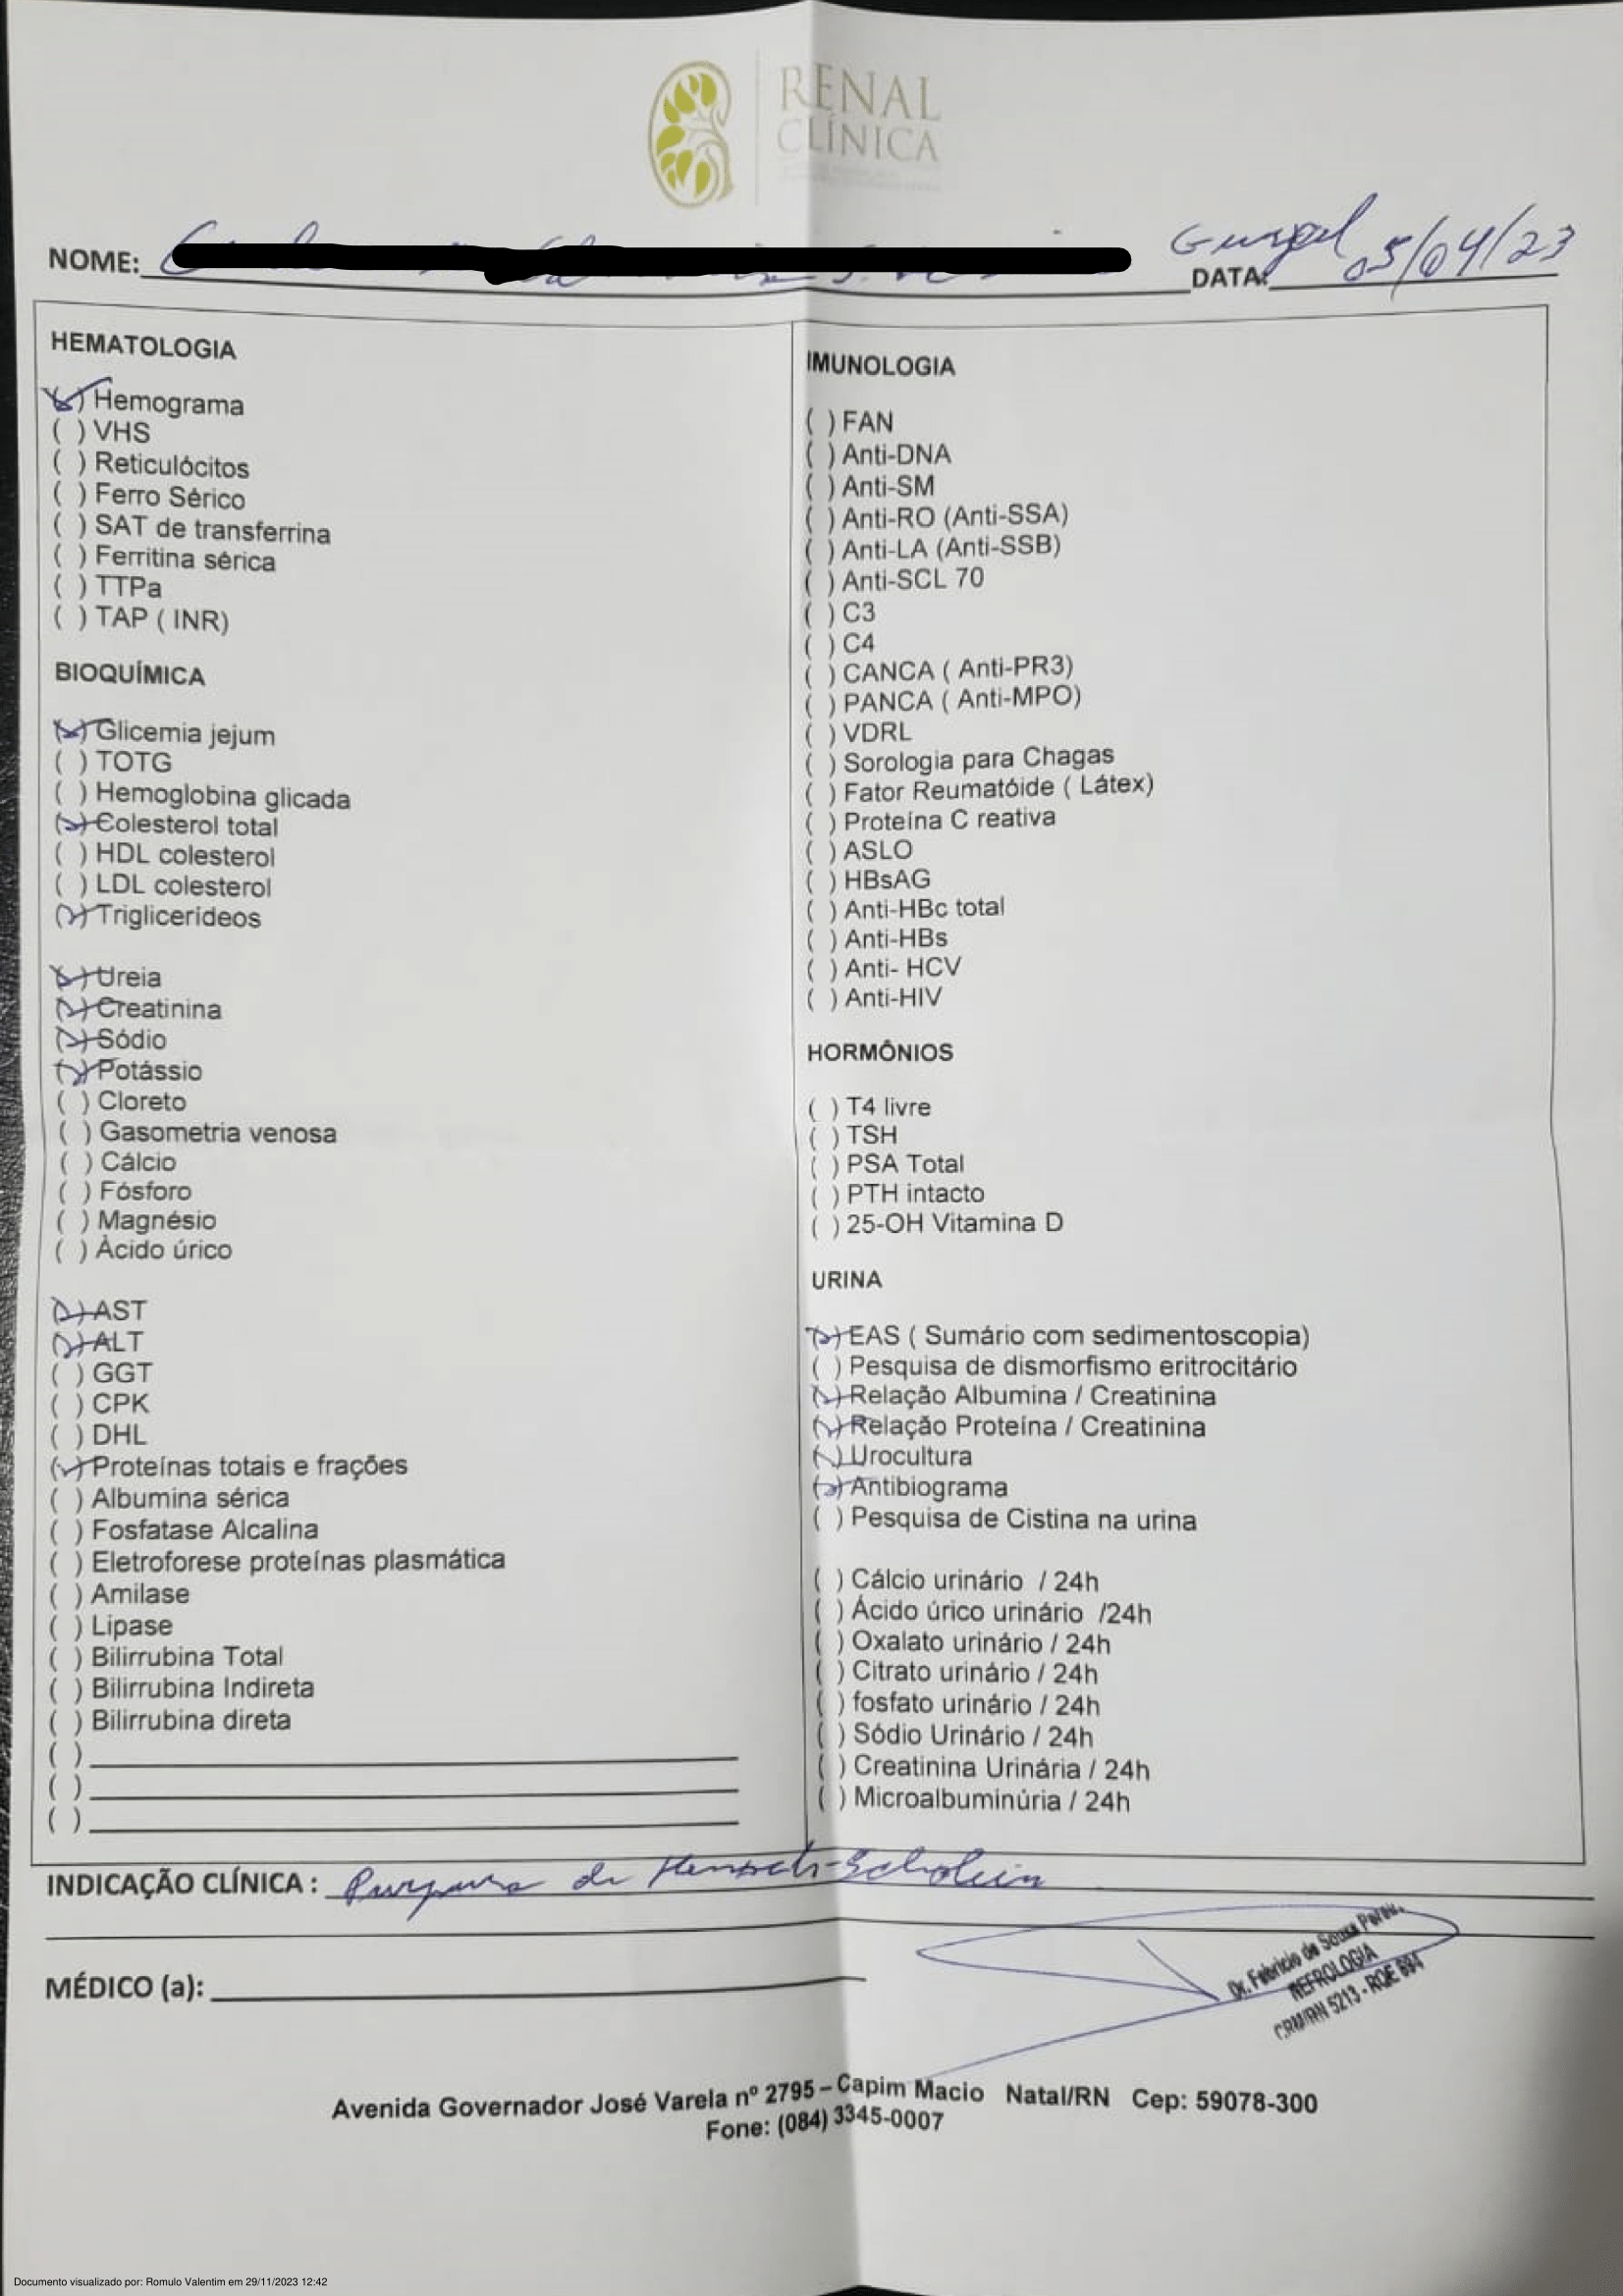 RENAL
CLÍNICA
NOME: Gurgel
DATA: 05/04/23
HEMATOLOGIA
(x) Hemograma
( ) VHS
( ) Reticulócitos
( ) Ferro Sérico
( ) SAT de transferrina
( ) Ferritina sérica
( ) TTPa
( ) TAP ( INR)
BIOQUÍMICA
(x) Glicemia jejum
( ) TOTG
( ) Hemoglobina glicada
(x) Colesterol total
( ) HDL colesterol
( ) LDL colesterol
(x) Triglicerídeos
(x) Ureia
(x) Creatinina
(x) Sódio
(x) Potássio
( ) Cloreto
( ) Gasometria venosa
( ) Cálcio
( ) Fósforo
( ) Magnésio
( ) Àcido úrico
(x) AST
(x) ALT
( ) GGT
( ) CPK
( ) DHL
(x) Proteínas totais e frações
( ) Albumina sérica
( ) Fosfatase Alcalina
( ) Eletroforese proteínas plasmática
( ) Amilase
( ) Lipase
( ) Bilirrubina Total
( ) Bilirrubina Indireta
( ) Bilirrubina direta
( )
( )
( )
IMUNOLOGIA
( ) FAN
( ) Anti-DNA
( ) Anti-SM
( ) Anti-RO (Anti-SSA)
( ) Anti-LA (Anti-SSB)
( ) Anti-SCL 70
( ) C3
( ) C4
( ) CANCA ( Anti-PR3)
( ) PANCA ( Anti-MPO)
( ) VDRL
( ) Sorologia para Chagas
( ) Fator Reumatóide ( Látex)
( ) Proteína C reativa
( ) ASLO
( ) HBsAG
( ) Anti-HBc total
( ) Anti-HBs
( ) Anti- HCV
( ) Anti-HIV
HORMÔNIOS
( ) T4 livre
( ) TSH
( ) PSA Total
( ) PTH intacto
( ) 25-OH Vitamina D
URINA
(x) EAS ( Sumário com sedimentoscopia)
( ) Pesquisa de dismorfismo eritrocitário
(x) Relação Albumina / Creatinina
(x) Relação Proteína / Creatinina
(x) Urocultura
(x) Antibiograma
( ) Pesquisa de Cistina na urina
( ) Cálcio urinário / 24h
( ) Ácido úrico urinário /24h
( ) Oxalato urinário / 24h
( ) Citrato urinário / 24h
( ) fosfato urinário / 24h
( ) Sódio Urinário / 24h
( ) Creatinina Urinária / 24h
( ) Microalbuminúria / 24h
INDICAÇÃO CLÍNICA : Purpura de Henoch-Scholein
MÉDICO (a):
Dr. Fabricio de Sousa
NEFROLOGIA
CRM/RN 5213 - RQE 694
Avenida Governador José Varela nº 2795 – Capim Macio Natal/RN Cep: 59078-300
Fone: (084) 3345-0007
Documento visualizado por: Romulo Valentim em 29/11/2023 12:42